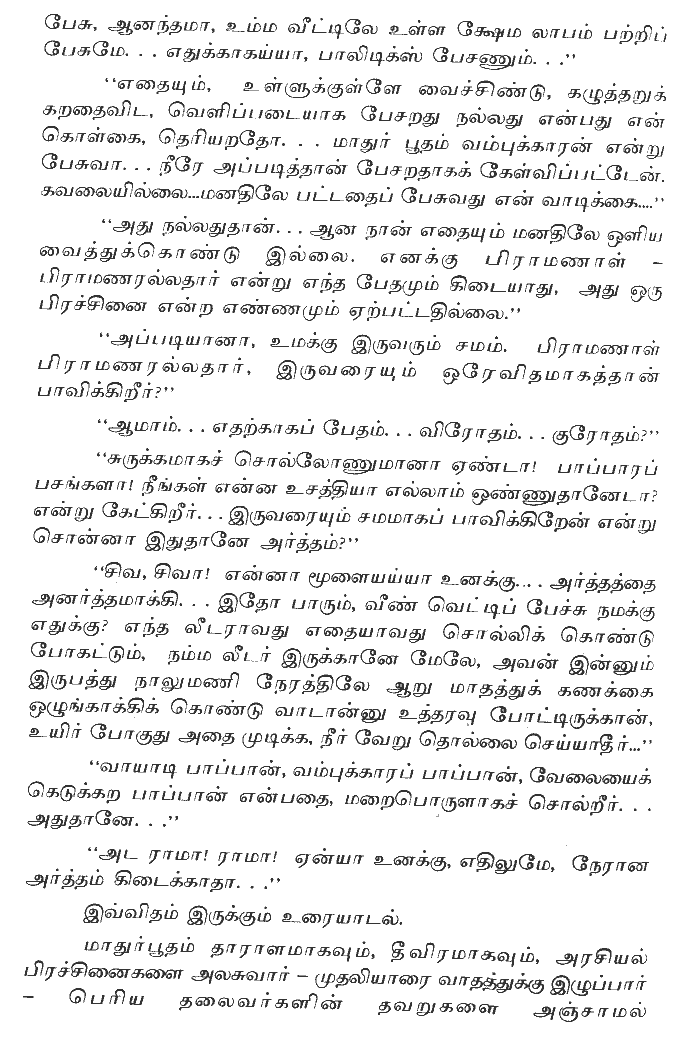 பேசு, ஆனந்தமா, உம்ம வீட்டிலே உள்ள க்ஷேம லாபம் பற்றிப்
பேசுமே. . . எதுக்காகய்யா, பாலிடிக்ஸ் பேசணும். . .”
“எதையும், உள்ளுக்குள்ளே வைச்சிண்டு, கழுத்தறுக்
கறதைவிட, வெளிப்படையாக பேசறது நல்லது என்பது என்
கொள்கை, தெரியறதோ. . . மாதுர் பூதம் வம்புக்காரன் என்று
பேசுவா. . . நீரே அப்படித்தான் பேசறதாகக் கேள்விப்பட்டேன்.
கவலையில்லை...மனதிலே பட்டதைப் பேசுவது என் வாடிக்கை....”
“அது நல்லதுதான். . . ஆன நான் எதையும் மனதிலே ஒளிய
வைத்துக்கொண்டு இல்லை. எனக்கு பிராமணாள் –
பிராமணரல்லதார் என்று எந்த பேதமும் கிடையாது, அது ஒரு
பிரச்சினை என்ற எண்ணமும் ஏற்பட்டதில்லை.”
“அப்படியானா, உமக்கு இருவரும் சமம். பிராமணாள்
பிராமணரல்லதார், இருவரையும் ஒரேவிதமாகத்தான்
பாவிக்கிறீர்?”
“ஆமாம். . . எதற்காகப் பேதம். . . விரோதம். . . குரோதம்?”
“சுருக்கமாகச் சொல்லோணுமானா ஏண்டா! பாப்பாரப்
பசங்களா! நீங்கள் என்ன உசத்தியா எல்லாம் ஒண்ணுதானேடா?
என்று கேட்கிறீர். . . இருவரையும் சமமாகப் பாவிக்கிறேன் என்று
சொன்னா இதுதானே அர்த்தம்?”
“சிவ, சிவா! என்னா மூளையய்யா உனக்கு. . . அர்த்தத்தை
அனர்த்தமாக்கி. . . இதோ பாரும், வீண் வெட்டிப் பேச்சு நமக்கு
எதுக்கு? எந்த லீடராவது எதையாவது சொல்லிக் கொண்டு
போகட்டும், நம்ம லீடர் இருக்கானே மேலே, அவன் இன்னும்
இருபத்து நாலுமணி நேரத்திலே ஆறு மாதத்துக் கணக்கை
ஒழுங்காக்கிக் கொண்டு வாடான்னு உத்தரவு போட்டிருக்கான்,
உயிர் போகுது அதை முடிக்க, நீர் வேறு தொல்லை செய்யாதீர்...”
“வாயாடி பாப்பான், வம்புக்காரப் பாப்பான், வேலையைக்
கெடுக்கற பாப்பான் என்பதை, மறைபொருளாகச் சொல்றீர். . .
அதுதானே. . .”
“அட ராமா! ராமா! ஏன்யா உனக்கு, எதிலுமே, நேரான
அர்த்தம் கிடைக்காதா. . .”
இவ்விதம் இருக்கும் உரையாடல்.
மாதுர்பூதம் தாராளமாகவும், தீவிரமாகவும், அரசியல்
பிரச்சினைகளை அலசுவார் – முதலியாரை வாதத்துக்கு இழுப்பார்
– பெரிய தலைவர்களின் தவறுகளை அஞ்சாமல்